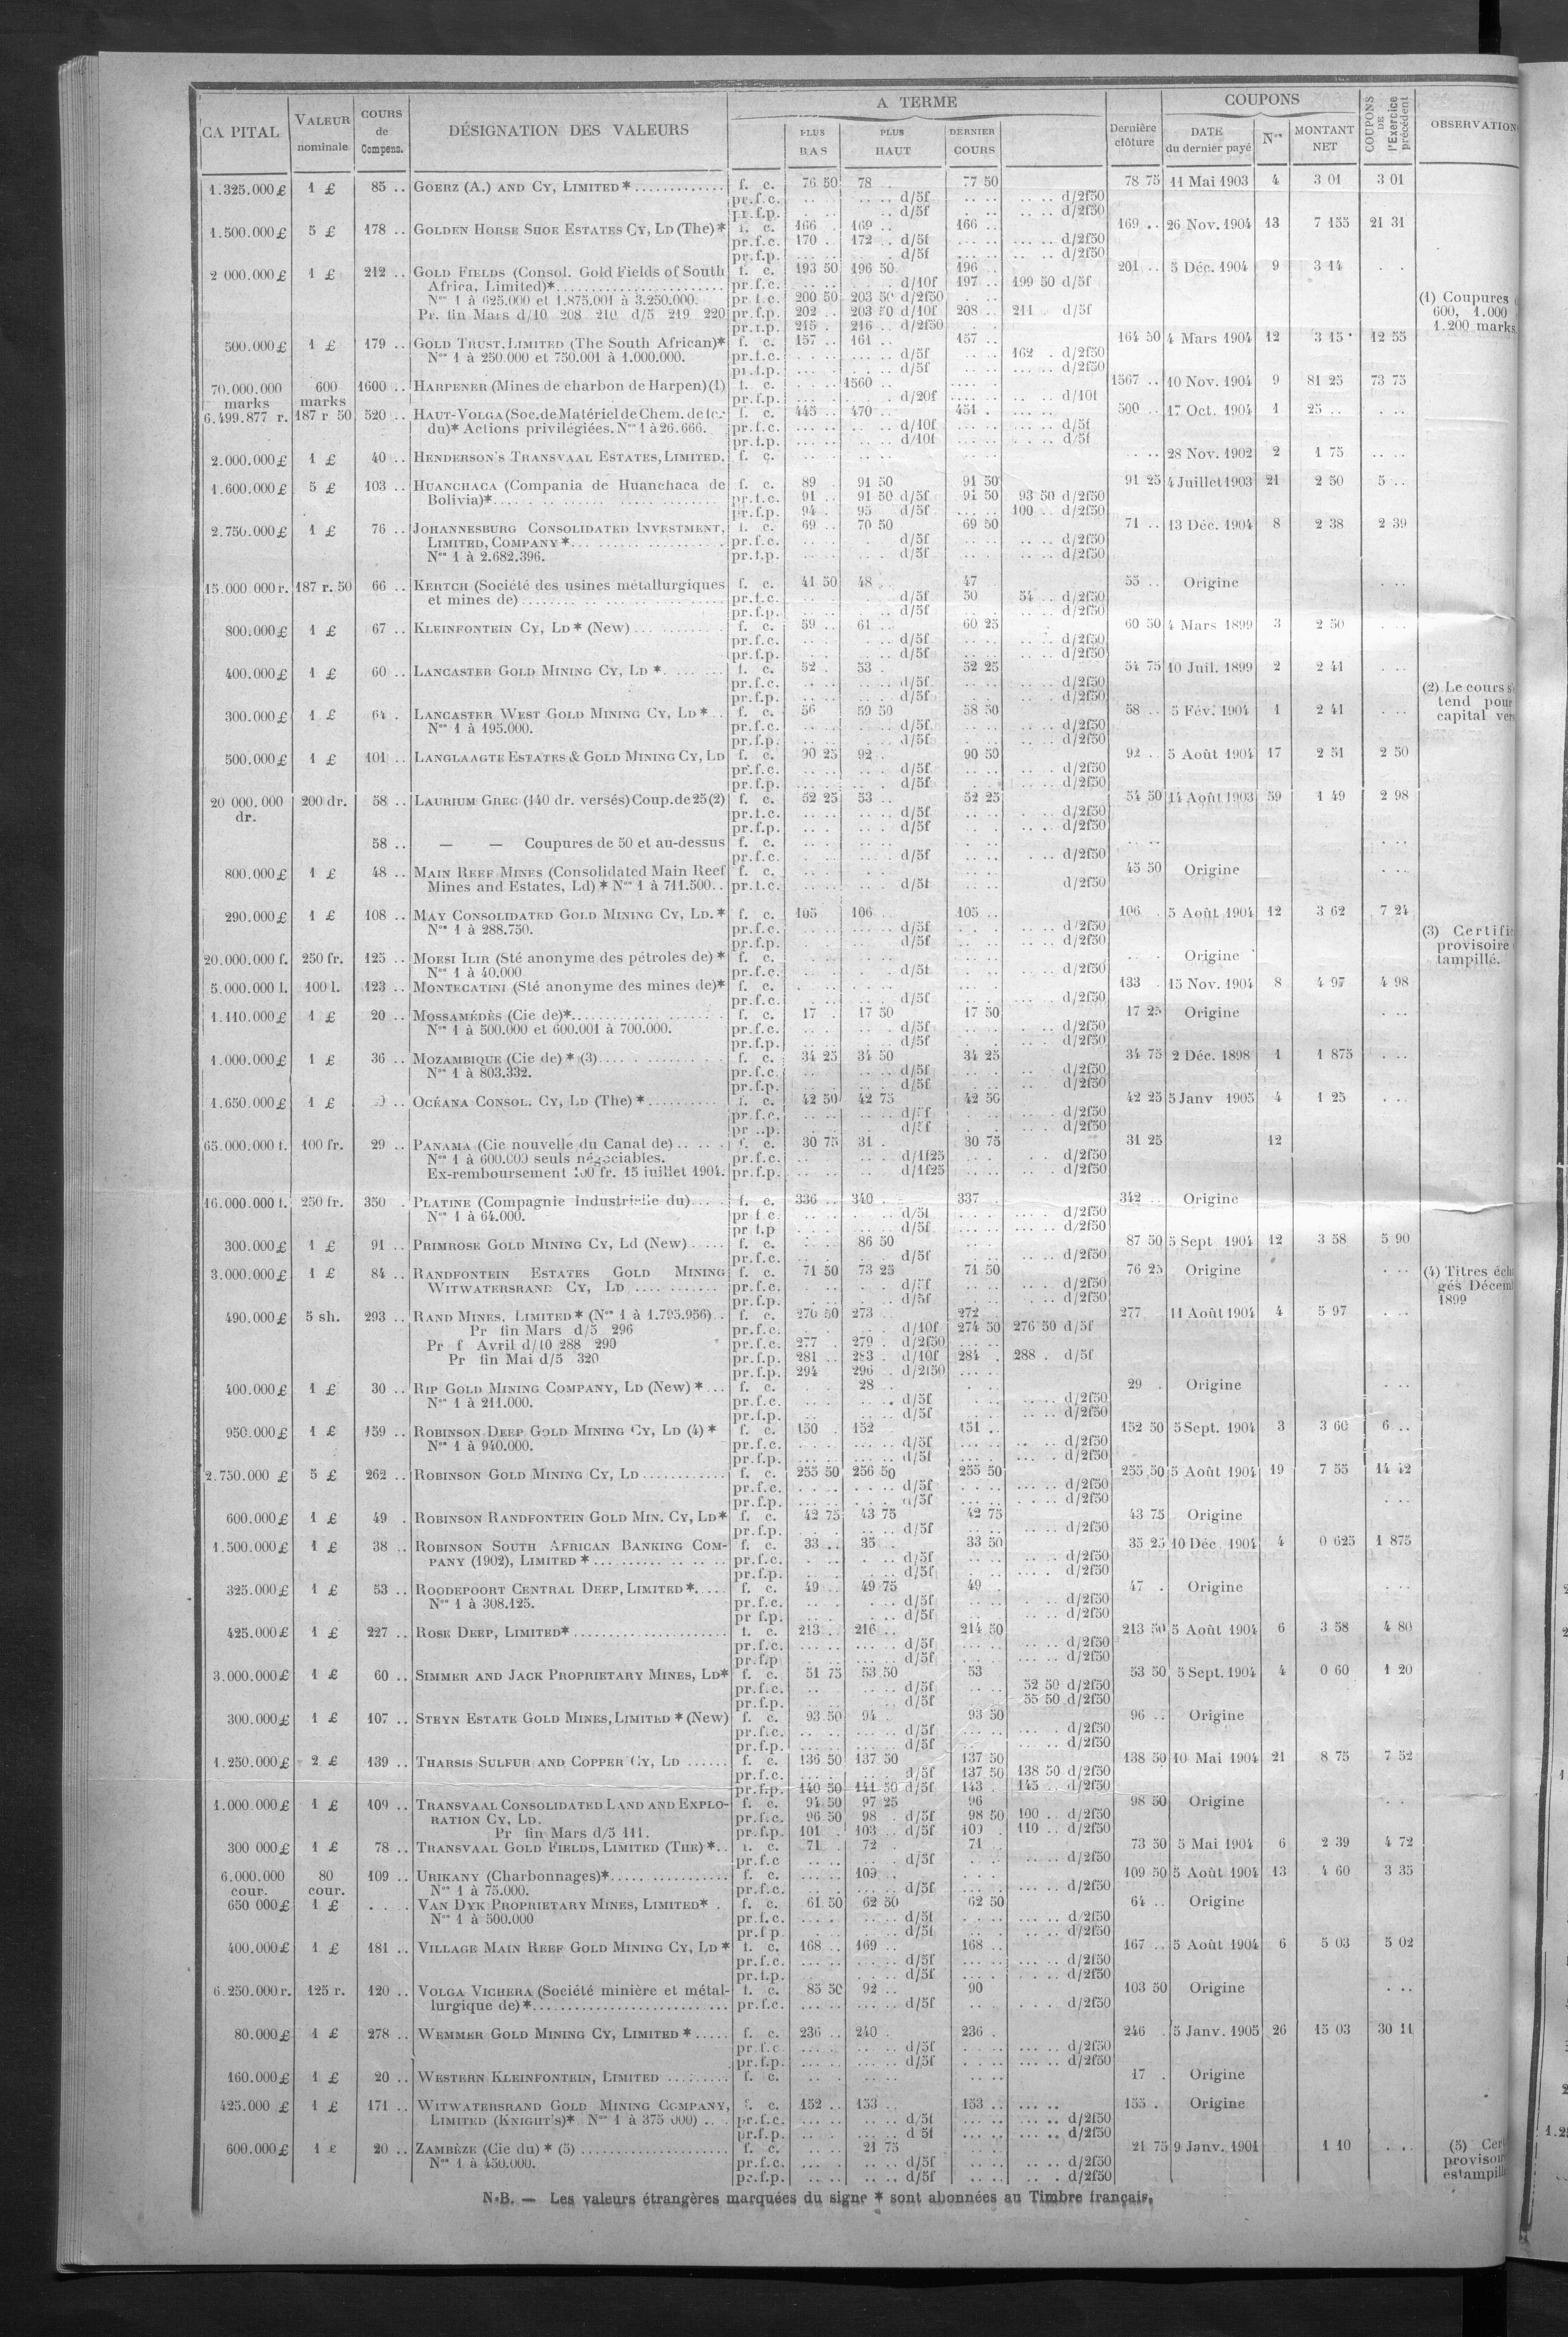 CAPITAL | VALEUR nominale | COURS de Compens. | DÉSIGNATION DES VALEURS | A TERME | PLUS BAS | PLUS HAUT | DERNIER COURS | Dernière clôture | COUPONS | DATE du dernier payé | Nos | MONTANT NET | COUPONS DE l'Exercice précédent | OBSERVATION
1.325.000£ 1 £ 85 .. GOERZ (A.) AND CY, LIMITED* f. c. 76 50 78 .. 77 50 78 75 11 Mai 1903 4 3 01 3 01
pr.f.c. d/5f d/2f50
pr.f.p. d/5f d/2f50
1.500.000£ 5 £ 178 .. GOLDEN HORSE SHOE ESTATES CY, LD (The)* f. c. 166 169 .. 166 .. 169 .. 26 Nov. 1904 13 7 155 21 31
pr.f.c. 170 . 172 .. d/5f d/2f50
pr.f.p. d/5f d/2f50
2 000.000£ 1 £ 212 .. GOLD FIELDS (Consol. Gold Fields of South f. c. 193 50 196 50 196 .. 201 .. 5 Déc. 1904 9 3 14
Africa, Limited)* pr.f.c. d/10f 197 .. 199 50 d/5f
Nos 1 à 625.000 et 1.875.001 à 3.250.000. pr.f.c. 200 50 203 50 d/2f50 (1) Coupures
Pr. fin Mars d/10 208 210 d/5 219 220 pr.f.p. 202 .. 203 50 d/10f 208 .. 211 . d/5f 600, 1.000
pr.f.p. 215 . 216 .. d/2f50 1.200 marks
500.000£ 1 £ 179 .. GOLD TRUST. LIMITED (The South African)* f. c. 157 .. 161 .. 157 .. 164 50 4 Mars 1904 12 3 15 12 55
Nos 1 à 250.000 et 750.001 à 1.000.000. pr.f.c. d/5f 162 . d/2f50
pr.f.p. d/5f d/2f50
70.000.000 marks 600 marks 1600 .. HARPENER (Mines de charbon de Harpen) (1) f. c. 1560 .. 1567 .. 10 Nov. 1904 9 81 25 73 75
pr.f.p. d/20f d/10f
6.499.877 r. 187 r 50 520 .. HAUT-VOLGA (Soc. de Matériel de Chem. de fer f. c. 445 .. 470 .. 451 . 500 .. 17 Oct. 1904 1 25 ..
du)* Actions privilégiées. Nos 1 à 26.666. pr.f.c. d/10f d/5f
pr.f.p. d/10f d/5f
2.000.000£ 1 £ 40 .. HENDERSON'S TRANSVAAL ESTATES, LIMITED. f. c. 28 Nov. 1902 2 1 75
1.600.000£ 5 £ 103 .. HUANCHACA (Compania de Huanchaca de f. c. 89 . 91 50 91 50 91 25 4 Juillet 1903 21 2 50 5 ..
Bolivia)* pr.f.c. 91 .. 91 50 d/5f 91 50 93 50 d/2f50
pr.f.p. 94 . 95 d/5f 100 .. d/2f50
2.750.000£ 1 £ 76 .. JOHANNESBURG CONSOLIDATED INVESTMENT, f. c. 69 .. 70 50 69 50 71 .. 13 Déc. 1904 8 2 38 2 39
LIMITED, COMPANY* pr.f.c. d/5f d/2f50
Nos 1 à 2.682.396. pr.f.p. d/5f d/2f50
15.000 000 r. 187 r. 50 66 .. KERTCH (Société des usines métallurgiques f. c. 41 50 48 .. 47 55 .. Origine
et mines de) pr.f.c. d/5f 50 54 .. d/2f50
pr.f.p. d/5f d/2f50
800.000£ 1 £ 67 .. KLEINFONTEIN CY, LD* (New) f. c. 59 .. 61 .. 60 25 60 50 4 Mars 1899 3 2 50
pr.f.c. d/5f d/2f50
pr.f.p. d/5f d/2f50
400.000£ 1 £ 60 .. LANCASTER GOLD MINING CY, LD * f. c. 52 . 53 .. 52 25 54 75 10 Juil. 1899 2 2 41
pr.f.c. d/5f d/2f50 (2) Le cours s'
pr.f.p. d/5f d/2f50 tend pour
300.000£ 1 £ 64 . LANCASTER WEST GOLD MINING CY, LD* f. c. 56 59 50 58 50 58 .. 5 Fév. 1904 1 2 41 capital vers
Nos 1 à 195.000. pr.f.c. d/5f d/2f50
pr.f.p. d/5f d/2f50
500.000£ 1 £ 101 .. LANGLAAGTE ESTATES & GOLD MINING CY, LD f. c. 90 25 92 . 90 50 92 .. 5 Août 1904 17 2 51 2 50
pr.f.c. d/5f d/2f50
pr.f.p. d/5f d/2f50
20 000.000 dr. 200 dr. 58 .. LAURIUM GREC (140 dr. versés) Coup. de 25 (2) f. c. 52 25 53 .. 52 25 54 50 14 Août 1903 59 1 49 2 98
pr.f.c. d/5f d/2f50
pr.f.p. d/5f d/2f50
58 .. — — Coupures de 50 et au-dessus f. c.
pr.f.c. d/5f d/2f50
800.000£ 1 £ 48 .. MAIN REEF MINES (Consolidated Main Reef f. c. 45 50 Origine
Mines and Estates, Ld)* Nos 1 à 711.500.. pr.f.c. d/5f d/2f50
290.000£ 1 £ 108 .. MAY CONSOLIDATED GOLD MINING CY, LD.* f. c. 105 106 .. 105 .. 106 . 5 Août 1904 12 3 62 7 24
Nos 1 à 288.750. pr.f.c. d/5f d/2f50 (3) Certifi
pr.f.p. d/5f d/2f50 provisoire
20.000.000 f. 250 fr. 125 .. MOESI ILIR (Sté anonyme des pétroles de)* f. c. Origine tampillé.
Nos 1 à 40.000 pr.f.c. d/5f d/2f50
5.000.000 l. 100 l. 123 .. MONTECATINI (Sté anonyme des mines de)* f. c. 133 . 15 Nov. 1904 8 4 97 4 98
pr.f.c. d/5f d/2f50
1.110.000£ 1 £ 20 .. MOSSAMÉDÈS (Cie de)* f. c. 17 . 17 50 17 50 17 25 Origine
Nos 1 à 500.000 et 600.001 à 700.000. pr.f.c. d/5f d/2f50
pr.f.p. d/5f d/2f50
1.000.000£ 1 £ 36 .. MOZAMBIQUE (Cie de)* (3) f. c. 34 25 34 50 34 25 34 75 2 Déc. 1898 1 1 875
Nos 1 à 803.332. pr.f.c. d/5f d/2f50
pr.f.p. d/5f d/2f50
1.650.000£ 1 £ OCÉANA CONSOL. CY, LD (The)* f. c. 42 50 42 75 42 50 42 25 5 Janv 1905 4 1 25
pr.f.c. d/5f d/2f50
d/5f d/2f50
65.000.000 f. 100 fr. 29 .. PANAMA (Cie nouvelle du Canal de) f. c. 30 75 31 . 30 75 31 25 12
Nos 1 à 600.000 seuls négociables. pr.f.c. d/1f25 d/2f50
Ex-remboursement 100 fr. 15 juillet 1904. pr.f.p. d/1f25 d/2f50
16.000.000 f. 250 fr. 350 . PLATINE (Compagnie Industrielle du) f. c. 336 .. 340 . 337 . 342 .. Origine
Nos 1 à 64.000. pr f.c. d/5f d/2f50
pr f.p d/5f d/2f50
300.000£ 1 £ 91 .. PRIMROSE GOLD MINING CY, Ld (New) f. c. 86 50 87 50 5 Sept 1904 12 3 58 5 90
pr.f.c. d/5f d/2f50
3.000.000£ 1 £ 84 .. RANDFONTEIN ESTATES GOLD MINING f. c. 71 50 73 25 71 50 76 25 Origine (4) Titres écha
WITWATERSRAND CY, LD pr.f.c. d/5f d/2f50 gés Décemb
pr.f.p. d/5f d/2f50 1899
490.000£ 5 sh. 293 .. RAND MINES, LIMITED* (Nos 1 à 1.795.956) f. c. 270 50 273 .. 272 .. 277 11 Août 1904 4 5 97
Pr fin Mars d/5 296 pr.f.c. d/10f 274 50 276 50 d/5f
Pr f Avril d/10 288 290 pr.f.c. 277 . 279 . d/2f50
Pr fin Mai d/5 320 pr.f.p. 281 .. 283 . d/10f 284 . 288 . d/5f
pr.f.p. 294 296 . d/2f50
400.000£ 1 £ 30 .. RIP GOLD MINING COMPANY, LD (New)* f. c. 28 .. 29 . Origine
Nos 1 à 211.000. pr.f.c. d/5f d/2f50
pr.f.p. d/5f d/2f50
950.000£ 1 £ 159 .. ROBINSON DEEP GOLD MINING CY, LD (4)* f. c. 150 . 152 151 .. 152 50 5 Sept. 1904 3 3 60 6 ..
Nos 1 à 940.000. pr.f.c. d/5f d/2f50
pr.f.p. d/5f d/2f50
2.750.000 £ 5 £ 262 .. ROBINSON GOLD MINING CY, LD f. c. 255 50 256 50 255 50 255 50 5 Août 1904 19 7 55 14 42
pr.f.c. d/5f d/2f50
pr.f.p. d/5f d/2f50
600.000£ 1 £ 49 . ROBINSON RANDFONTEIN GOLD MIN. CY, LD* f. c. 42 75 43 75 42 75 43 75 Origine
pr.f.p. d/5f d/2f50
1.500.000£ 1 £ 38 .. ROBINSON SOUTH AFRICAN BANKING COM- f. c. 33 .. 35 . 33 50 35 25 10 Déc. 1904 4 0 625 1 875
PANY (1902), LIMITED* pr.f.c. d/5f d/2f50
pr.f.p. d/5f d/2f50
325.000£ 1 £ 53 .. ROODEPOORT CENTRAL DEEP, LIMITED* f. c. 49 .. 49 75 49 . 47 . Origine
Nos 1 à 308.125. pr.f.c. d/5f d/2f50
pr f.p. d/5f d/2f50
425.000£ 1 £ 227 .. ROSE DEEP, LIMITED* f. c. 213 .. 216 .. 214 50 213 50 5 Août 1904 6 3 58 4 80
pr.f.c. d/5f d/2f50
pr.f.p d/5f d/2f50
3.000.000£ 1 £ 60 .. SIMMER AND JACK PROPRIETARY MINES, LD* f. c. 51 75 53 50 53 53 50 5 Sept. 1904 4 0 60 1 20
pr.f.c. d/5f 52 50 d/2f50
pr.f.p. d/5f 55 50 d/2f50
300.000£ 1 £ 107 .. STEYN ESTATE GOLD MINES, LIMITED* (New) f. c. 93 50 94 . 93 50 96 .. Origine
pr.f.c. d/5f d/2f50
pr.f.p. d/5f d/2f50
1.250.000£ 2 £ 139 .. THARSIS SULFUR AND COPPER CY, LD f. c. 136 50 137 50 137 50 138 50 10 Mai 1904 21 8 75 7 52
pr.f.c. d/5f 137 50 138 50 d/2f50
pr.f.p. 140 50 141 50 d/5f 143 . 145 .. d/2f50
1.000.000£ 1 £ 109 .. TRANSVAAL CONSOLIDATED LAND AND EXPLO- f. c. 94 50 97 25 96 98 50 Origine
RATION CY, LD. pr.f.c. 96 50 98 . d/5f 98 50 100 .. d/2f50
Pr fin Mars d/5 111. pr.f.p. 101 . 103 .. d/5f 109 . 110 .. d/2f50
300 000£ 1 £ 78 .. TRANSVAAL GOLD FIELDS, LIMITED (THE)* f. c. 71 . 72 . 71 73 50 5 Mai 1904 6 2 39 4 72
pr.f.c d/5f d/2f50
6.000.000 cour. 80 cour. 109 .. URIKANY (Charbonnages)* f. c. 109 .. 109 50 5 Août 1904 13 4 60 3 35
Nos 1 à 75.000. pr.f.c. d/5f d/2f50
650 000£ 1 £ VAN DYK PROPRIETARY MINES, LIMITED* f. c. 61 50 62 50 62 50 64 .. Origine
Nos 1 à 500.000 pr.f.c. d/5f d/2f50
pr.f p. d/5f d/2f50
400.000£ 1 £ 181 .. VILLAGE MAIN REEF GOLD MINING CY, LD* f. c. 168 .. 169 .. 168 .. 167 .. 5 Août 1904 6 5 03 5 02
pr.f.c. d/5f d/2f50
pr.f.p. d/5f d/2f50
6.250.000 r. 125 r. 120 .. VOLGA VICHERA (Société minière et métal- f. c. 85 50 92 .. 90 103 50 Origine
lurgique de)* pr.f.c. d/5f d/2f50
80.000£ 1 £ 278 .. WEMMER GOLD MINING CY, LIMITED* f. c. 236 .. 240 . 236 . 246 . 5 Janv. 1905 26 15 03 30 11
pr f.c d/5f d/2f50
pr.f.p. d/5f d/2f50
160.000£ 1 £ 20 .. WESTERN KLEINFONTEIN, LIMITED f. c. 17 . Origine
425.000 £ 1 £ 171 .. WITWATERSRAND GOLD MINING COMPANY, f. c. 152 .. 153 .. 153 .. 155 . Origine
LIMITED (KNIGHT'S)* Nos 1 à 375 000) pr.f.c. d/5f d/2f50
pr.f.p. d 5f d/2f50
600.000£ 1 £ 20 .. ZAMBÈZE (Cie du)* (5) f. c. 21 75 21 75 9 Janv. 1901 1 10 (5) Cer
Nos 1 à 450.000. pr.f.c. d/5f d/2f50 provisoir
pr.f.p. d/5f d/2f50 estampill
N.B. — Les valeurs étrangères marquées du signe * sont abonnées au Timbre français.